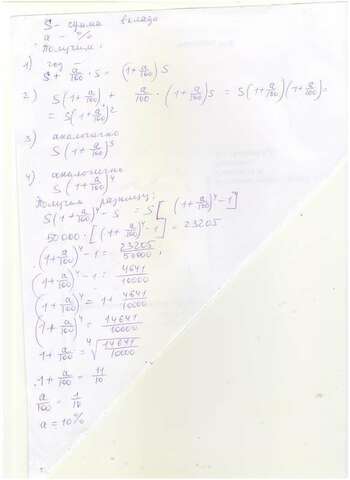 S - сумма вклада
a - %
Получим:
1) год -
S + a/100 · S = (1 + a/100) S
2) S(1 + a/100) + a/100 · (1 + a/100)S = S(1 + a/100)(1 + a/100) =
= S(1 + a/100)^2
3) аналогично
S(1 + a/100)^3
4) аналогично
S(1 + a/100)^4
Получим разницу:
S(1 + a/100)^4 - S = S[(1 + a/100)^4 - 1]
50000 · [(1 + a/100)^4 - 1] = 23205
(1 + a/100)^4 - 1 = 23205/50000;
(1 + a/100)^4 - 1 = 4641/10000
(1 + a/100)^4 = 1 + 4641/10000
(1 + a/100)^4 = 14641/10000
1 + a/100 = ⁴√(14641/10000)
1 + a/100 = 11/10
a/100 = 1/10
a = 10%